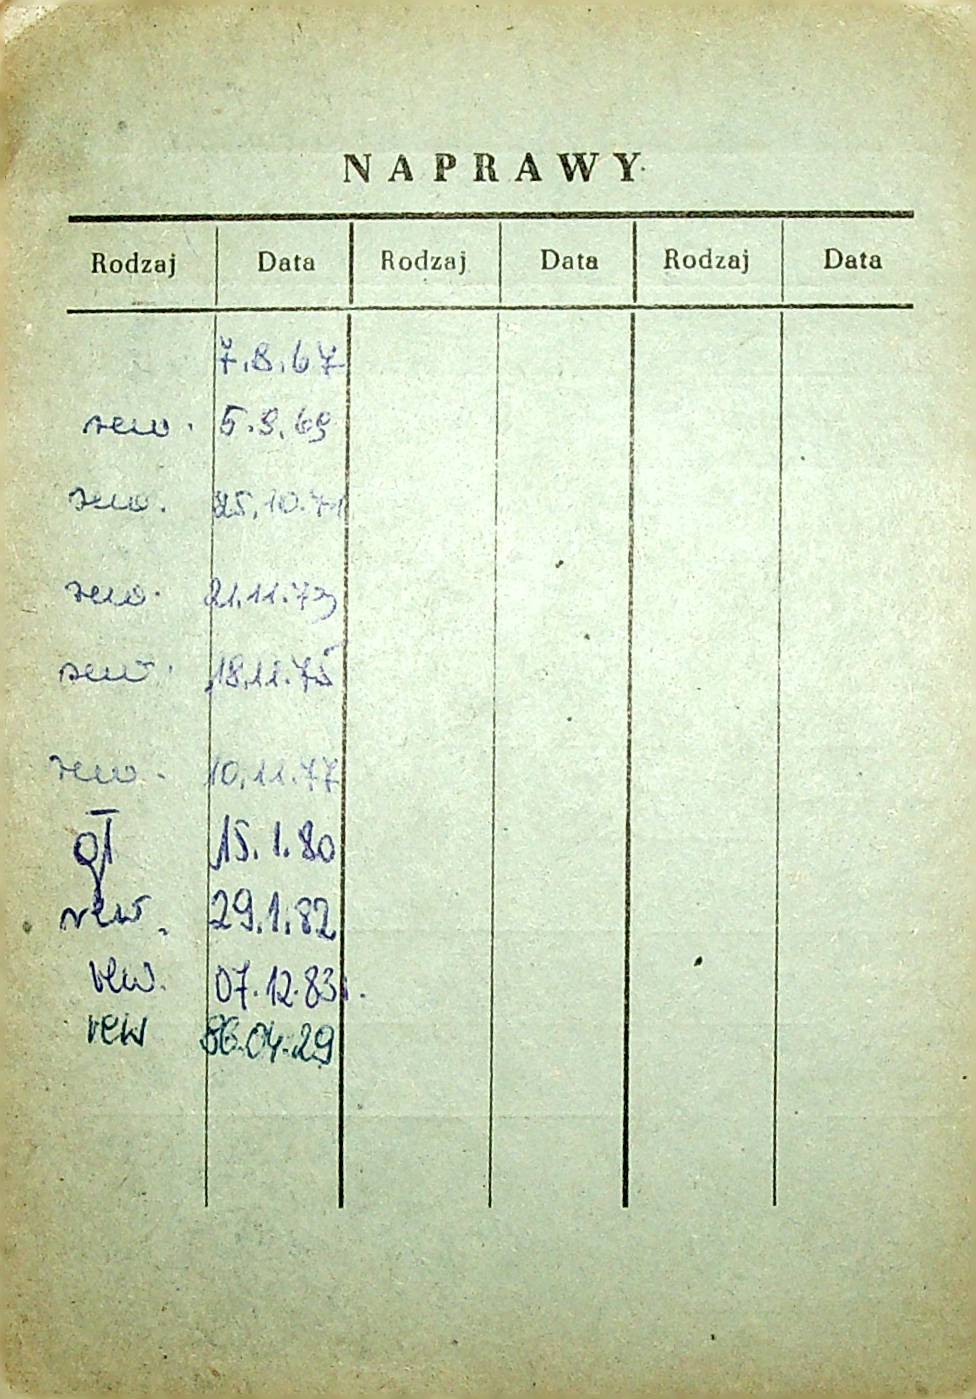 NAPRAWY
Rodzaj Data Rodzaj Data Rodzaj Data
7.8.67
rew. 5.9.69
rew. 25.10.71
rew. 21.11.73
rew. 18.11.75
rew. 10.11.77
gł 15.1.80
rew. 29.1.82
rew. 07.12.83r.
rew 86.04.29